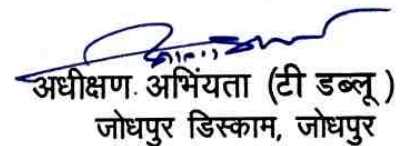 अधीक्षण अभियंता (टी डब्लू)
जोधपुर डिस्काम, जोधपुर